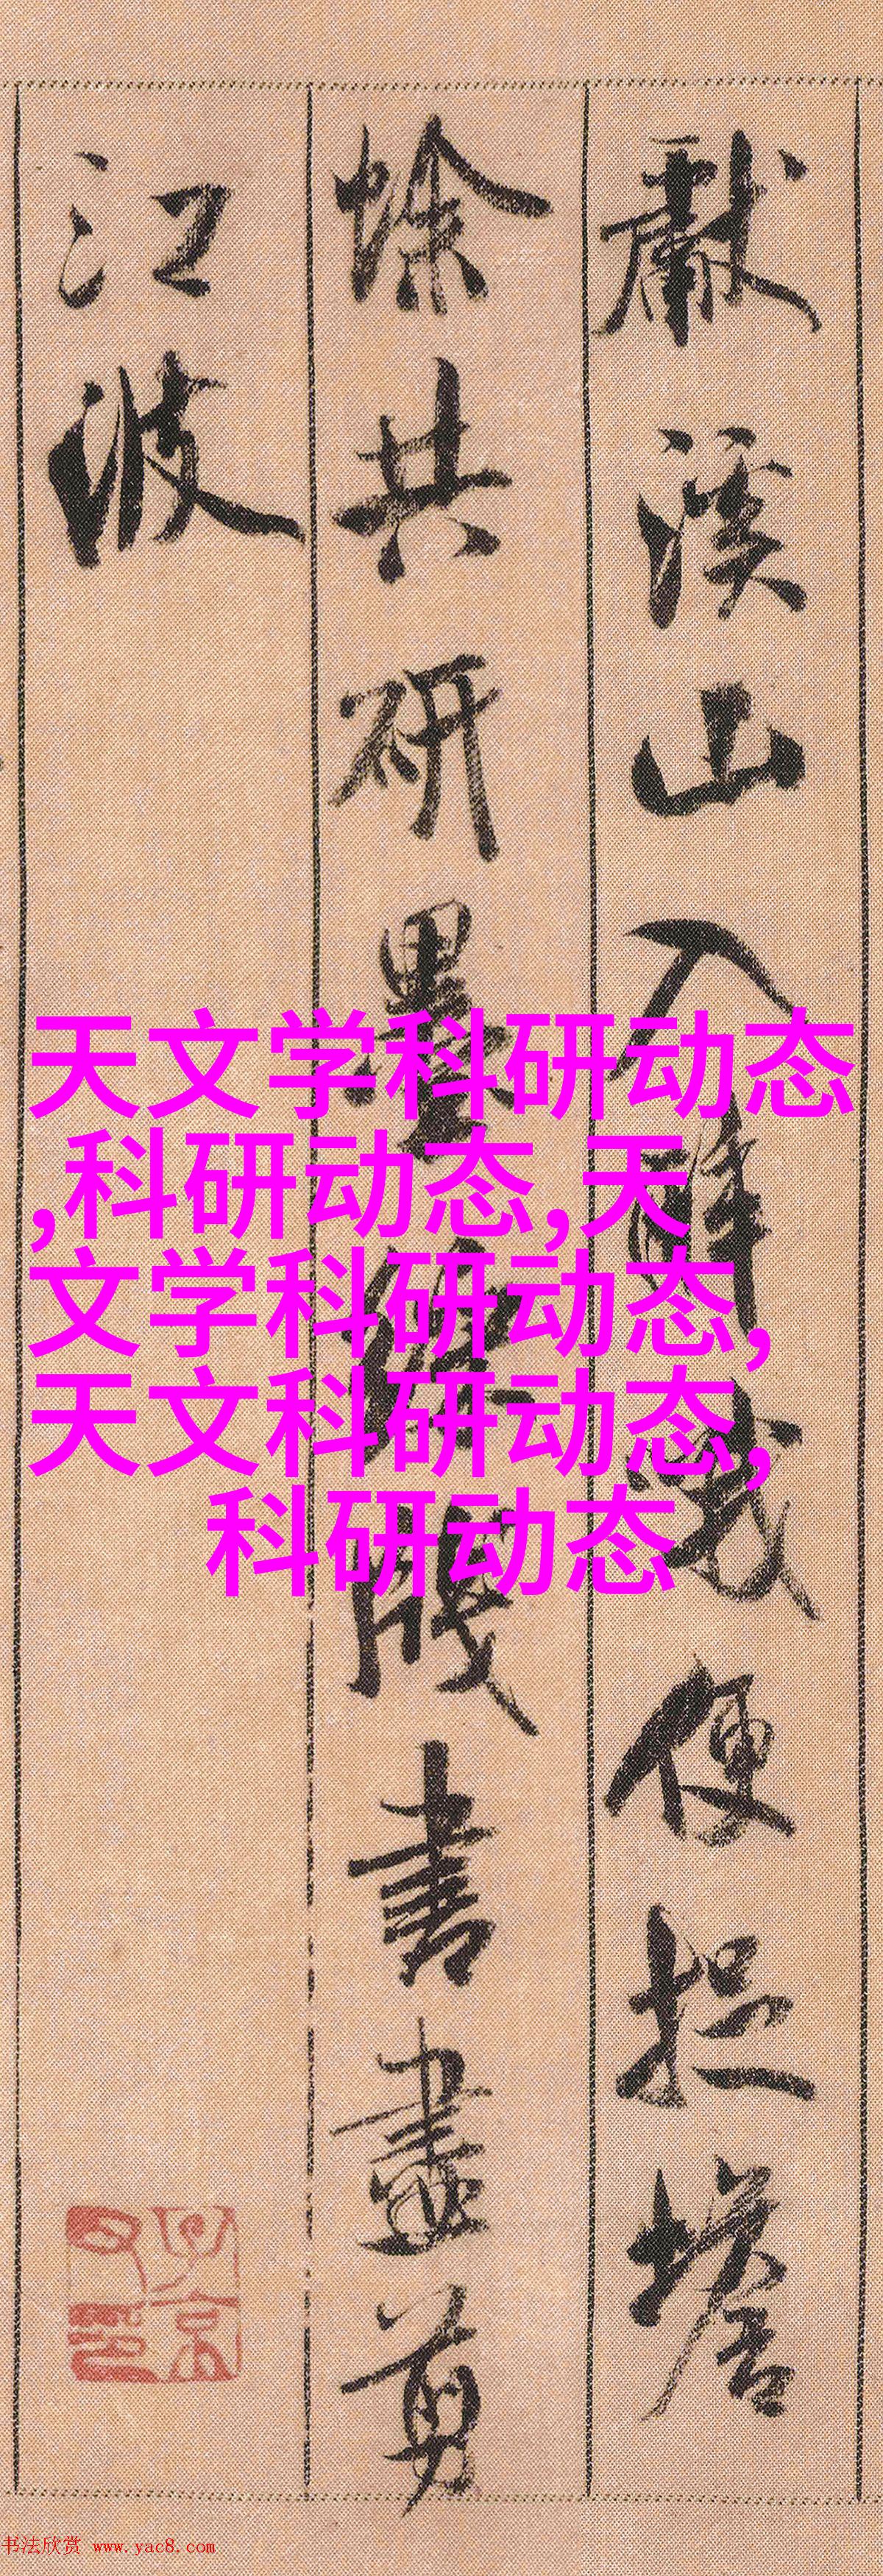 獻溪山入醉哦便捉蟾
蜍共研墨綵牋書盡剪
江波
天文学科研动态
,科研动态,天
文学科研动态,
天文科研动态,
科研动态
书法欣赏 www.yac8.com